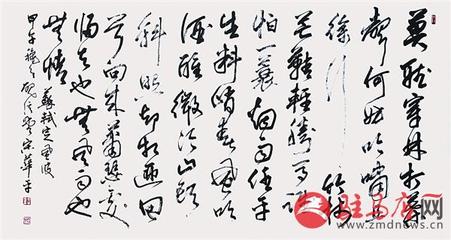 莫聽穿林打葉
聲何妨吟嘯且
徐行竹杖
芒鞋輕勝馬誰
怕一蓑烟雨任平
生料峭春風吹
酒醒微冷山頭
斜照却相迎回
首向來蕭瑟處
歸去也無風雨也
無晴
蘇軾定風波
甲午 宋華平
驻马店网
www.zmdnews.cn